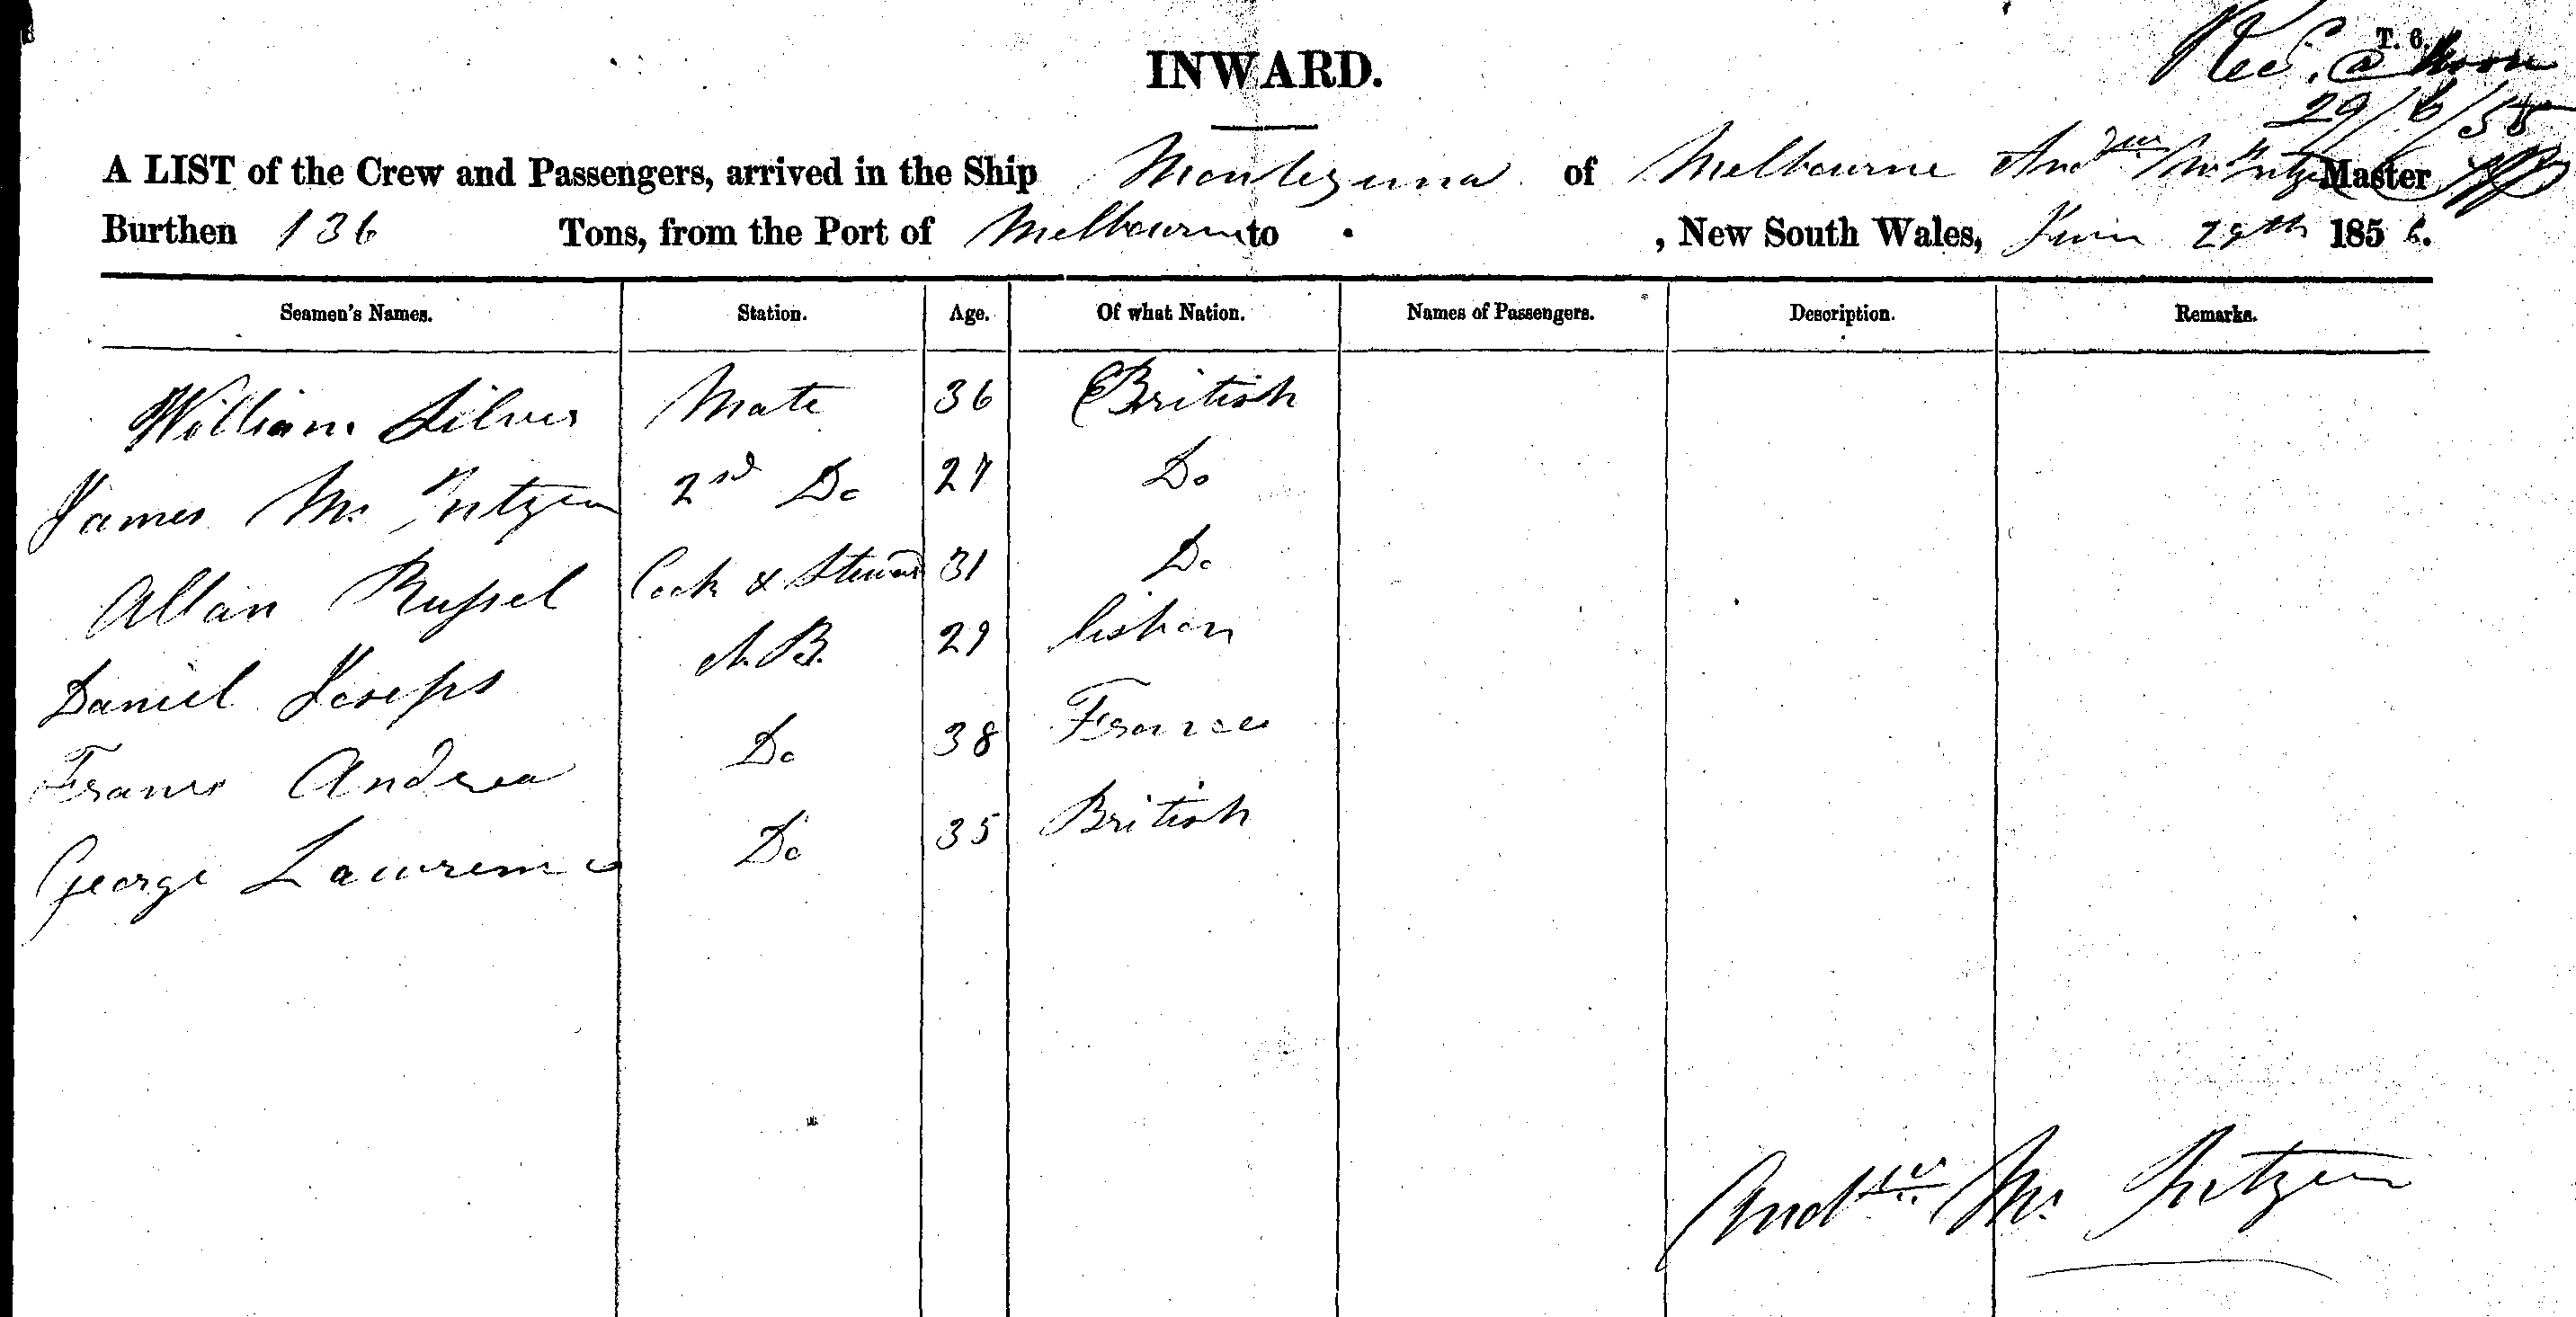 T. 6.
Rec. @ Noon
29/6/58
INWARD.
A LIST of the Crew and Passengers, arrived in the Ship Montezuma of Melbourne And^rew Mc Intzen Master
Burthen 136 Tons, from the Port of Melbourne to , New South Wales, June 29th 185 .
Seamen's Names. Station. Age. Of what Nation. Names of Passengers. Description. Remarks.
William Silver Mate 36 British
James Mc Intzen 2nd Do 27 Do
Allan Russel Cook & Steward 31 Do
Daniel Joseps A.B. 29 Lisbon
Andrea Do 38 France
George Lawrence Do 35 British
And^rew Mc Intzen